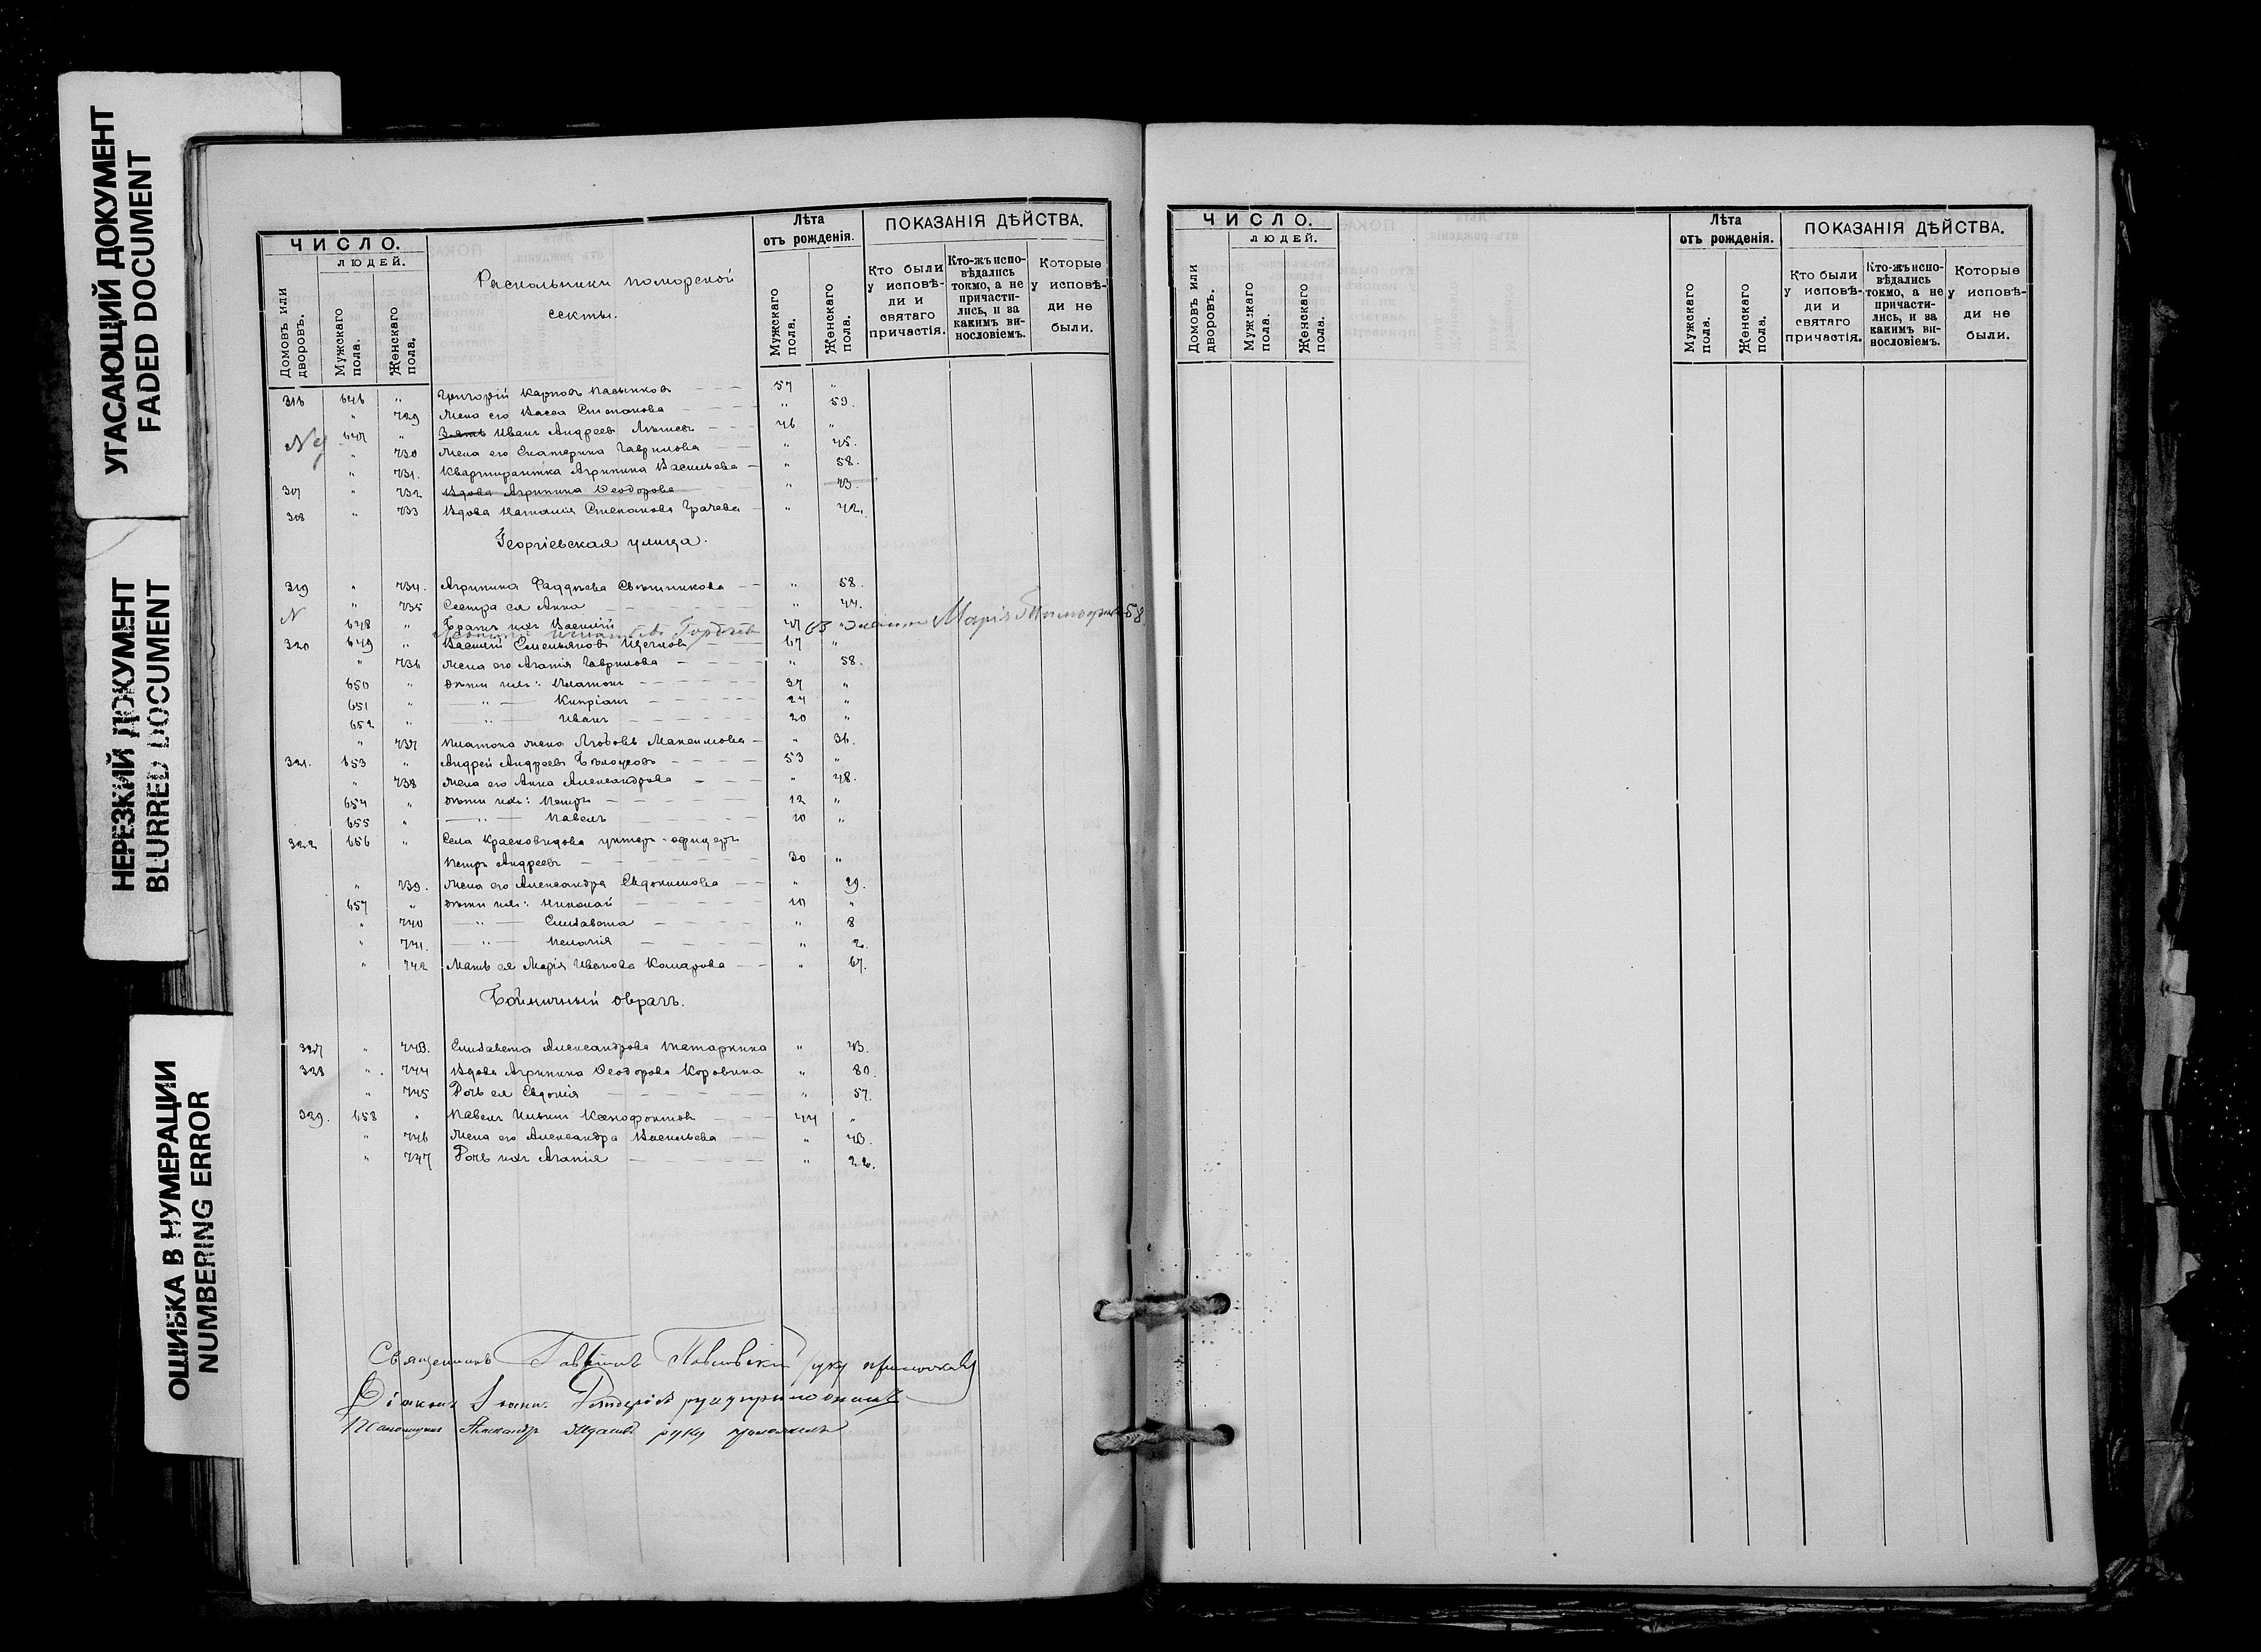 УГАСАЮЩИЙ ДОКУМЕНТ
FADED DOCUMENT
НЕРЕЗКИЙ ДОКУМЕНТ
BLURRED DOCUMENT
ОШИБКА В НУМЕРАЦИИ
NUMBERING ERROR
ЧИСЛО.
ЛЮДЕЙ.
Домовъ или дворовъ.
Мужскаго пола.
Женскаго пола.
Раскольники поморской
секты.
Лѣта
отъ рожденія.
Мужскаго пола.
Женскаго пола.
ПОКАЗАНІЯ ДѢЙСТВА.
Кто были у исповѣди и святаго причастія.
Кто-жъ исповѣдались токмо, а не причастились, и за какимъ винословіемъ.
Которые у исповѣди не были.
316 646 " Григорій Карповъ 57 "
" 729 Жена его Васса Степанова " 59.
647 " Зять Иванъ Андреевъ 46 "
" 730 Жена его Екатерина Гаврилова " 45.
" 731. Квартирантка Агрипина Васильева " 58.
317 " 732 Вдова Агрипина Ѳеодорова " 73.
318 " 733 Вдова Наталія Степанова Грачева " 42.
Георгіевская улица.
319 " 734. Агрипина Фаддѣева Свѣшникова " 58.
" 735 Сестра ея Анна " 44.
648 " Братъ ихъ Василій
Марія 58
320 649 " Василій Емельяновъ Щегловъ 67 "
" 736 Жена его Агапія Гаврилова " 58.
650 " Дѣти ихъ: Платонъ 37 "
651 " — " — Кипріанъ 24 "
652 " — " — Иванъ 20 "
" 737 Платона жена Любовь Максимова " 36.
321. 653 " Андрей Андреевъ Бѣлоусовъ 53 "
" 738 Жена его Анна Александрова " 48.
654 " Дѣти ихъ: Петръ 12 "
655 " — " — Павелъ 10 "
322 656 " Села Красновидова унтеръ-офицеръ
Петръ Андреевъ 30 "
" 739. Жена его Александра Евдокимова " 29.
657 " Дѣти ихъ: Николай 10 "
" 740 — " — Елизавета " 8
" 741. — " — Пелагія " 2.
" 742 Мать ея Марія Иванова Комарова " 67.
Бойничный оврагъ.
327 " 743. Елизавета Александрова Татаркина " 43.
328 " 744 Вдова Агрипина Ѳеодорова Коровина " 80.
" 745 Дочь ея Евдокія " 57.
329. 658 " Павелъ Ильинъ Ксенофонтовъ 44 "
" 746 Жена его Александра Васильева " 43.
" 747 Дочь ихъ Агапія " 22.
Священникъ Павловскій руку приложилъ
Діаконъ Іоаннъ руку приложилъ
Псаломщикъ Александръ Ждановъ руку приложилъ
ЧИСЛО.
ЛЮДЕЙ.
Домовъ или дворовъ.
Мужскаго пола.
Женскаго пола.
Лѣта
отъ рожденія.
Мужскаго пола.
Женскаго пола.
ПОКАЗАНІЯ ДѢЙСТВА.
Кто были у исповѣди и святаго причастія.
Кто-жъ исповѣдались токмо, а не причастились, и за какимъ винословіемъ.
Которые у исповѣди не были.